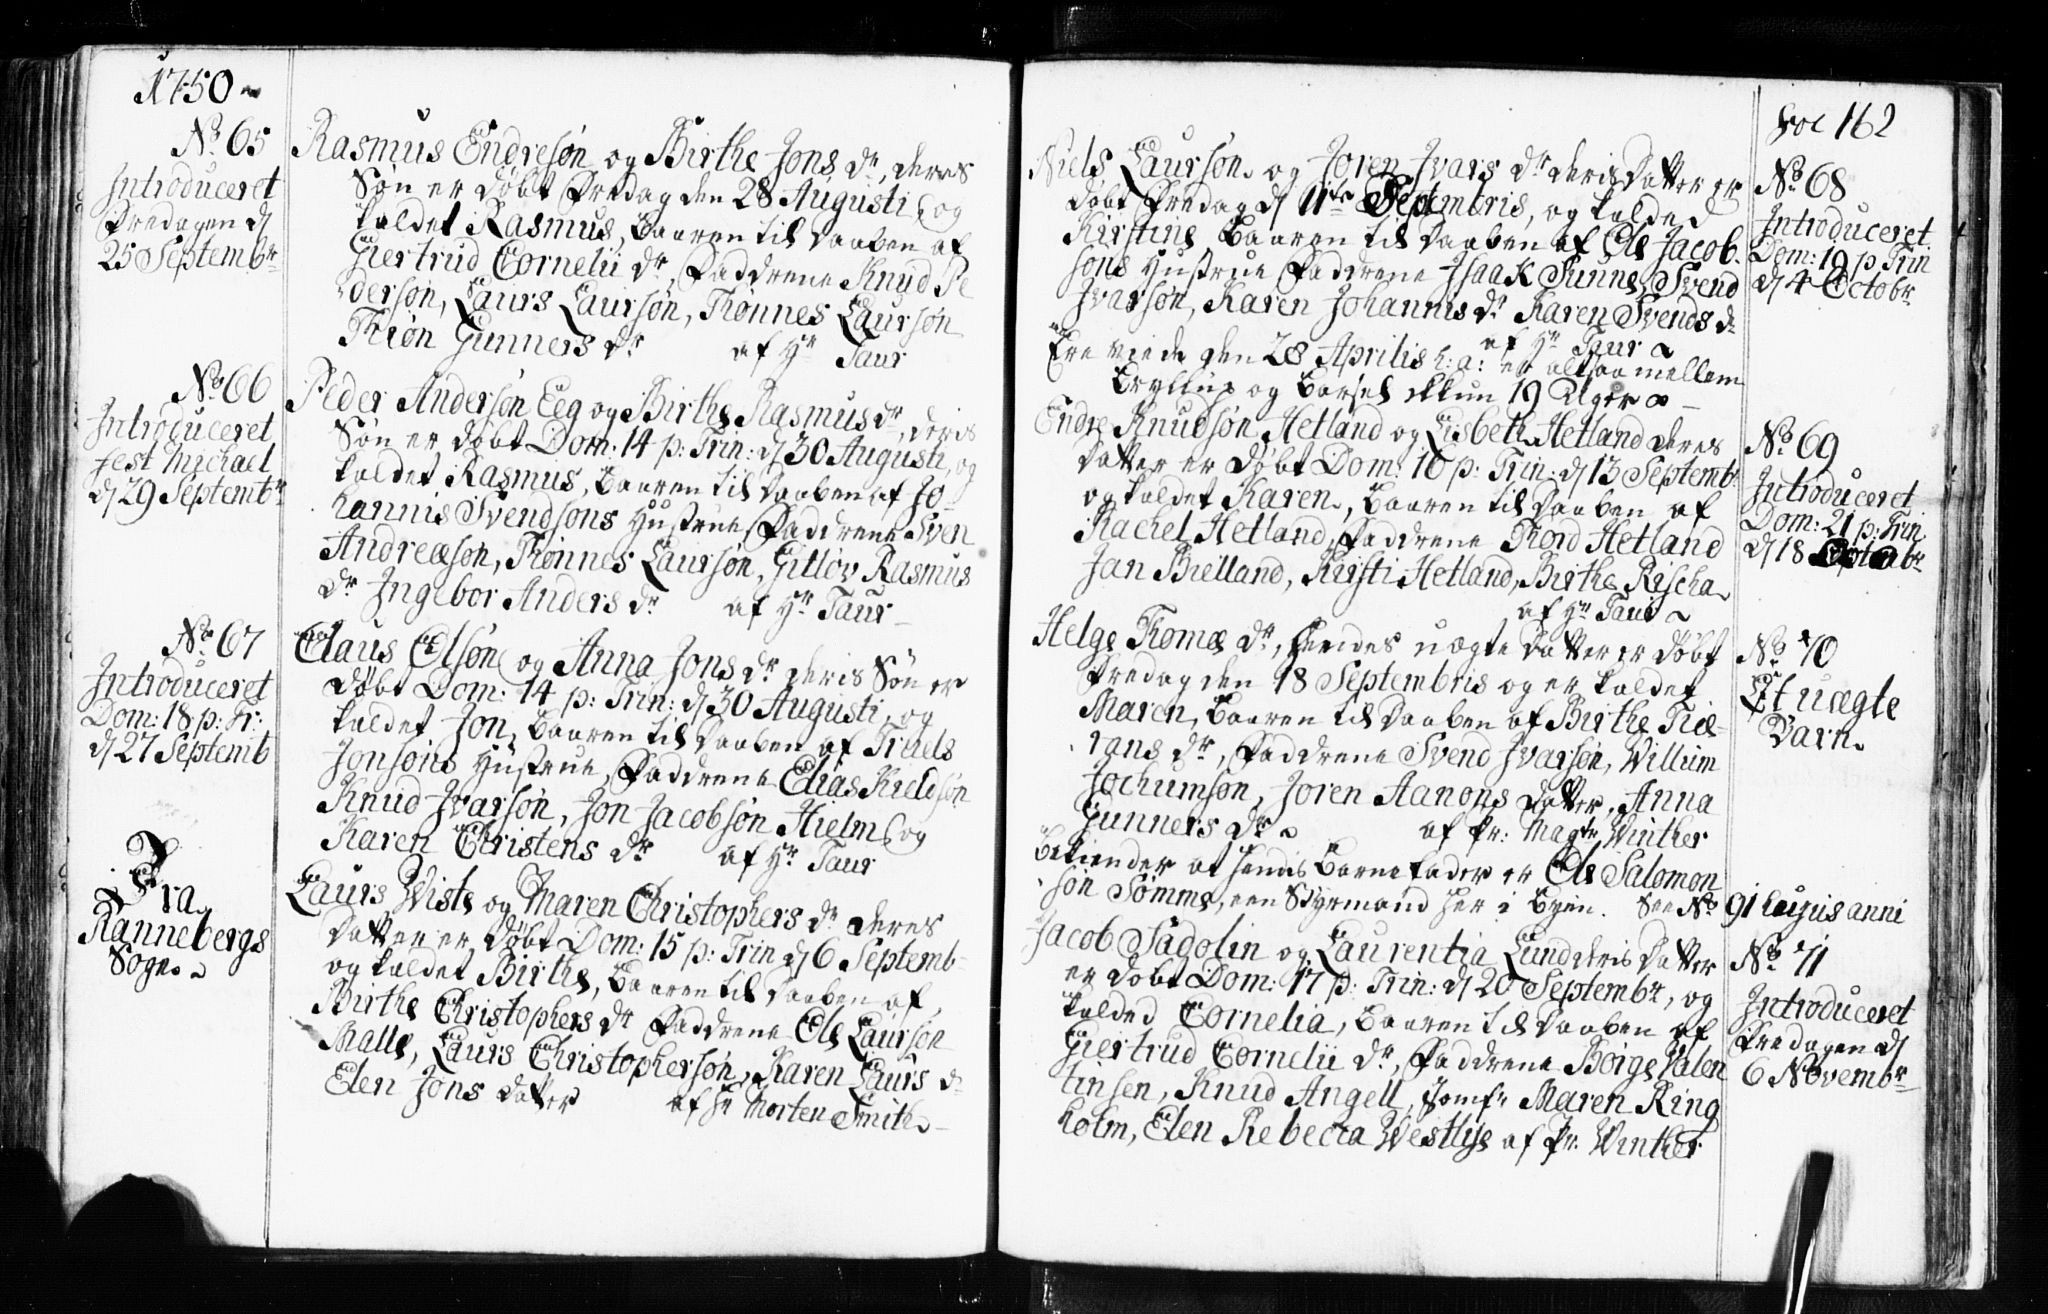 1750
No 65
Introduceret
Fredagen d
25 Septembr
Rasmus Endresøn og Birthe Jons dr, deres
Søn er døbt Fredag den 28 Augusti, og
kaldet Rasmus, baaren til Daaben af
Giertrud Cornelii dr, Faddrene Knud Pe
dersøn, Laurs Laursøn, Tønnes Laursøn
Thiøn Gunners dr af Hr Taur
No 66
Introduceret
Fest Michael
d 29 Septembr
Peder Andersøn Eeg og Birthe Rasmus dr, deris
Søn er døbt Dom: 14 p: Trin: d 30 Augusti, og
kaldet Rasmus, baaren til Daaben af Jo
hannis Svendsøns Hustrue, Faddrene Sven
Andreæsøn, Tønnes Laursøn, Gitlov Rasmus
dr Ingebor Anders dr af Hr Taur
No 67
Introduceret
Dom: 18 p: Tr:
d 27 Septemb
Claus Olsøn og Anna Jons dr deris Søn er
døbt Dom: 14 p: Trin: d 30 Augusti, og
kaldet Jon, baaren til Daaben af Truels
Jonsøns Hustrue, Faddrene Elias Kieldsøn
Knud Ivarsøn, Jon Jacobsøn Hielm, og
Karen Christens dr af Hr Taur
Fra
Rannebergs
Sogn
Laurs Wiste og Maren Christophers dr deres
Datter er døbt Dom: 15 p: Trin d 6 Septemb
og kaldet Birthe, baaren til Daaben af
Birthe Christophers dr Faddrene Ole Laursøn
Malle, Laurs Christophersøn, Karen Laurs dr
Elen Jons datter af Hr Morten Smith
Fol 162
Niels Laursøn og Joren Ivars dr deris Datter er
døbt Fredag d 11te Septembris, og kaldet
Kirstine, baaren til Daaben af Ole Jacob
søns Hustrue Faddrene Isaak Sunne, Svend
Ivarsøn, Karen Johannis dr Karen Svends dr
af Hr Taur
Ere viede den 28 Aprilis h: a: er altsaa mellem
Bryllup og Barsel ikkun 19 Uger
No 68
Introduceret
Dom: 19 p Trin
d 4 Octobr
Endre Knudsøn Hetland og Lisbeth Hetland deres
Datter er døbt Dom: 16 p: Trin: d 13 Septembr
og kaldet Karen, baaren til Daaben af
Rachel Hetland, Faddrene Tord Hetland
Jan Bielland, Kirsti Hetland, Birthe Rischa
af Hr Taur
No 69
Introduceret
Dom: 21 p: Trin
d 18 Octobr
Helge Tomæ dr, hendes uægte Datter er døbt
Fredag den 18 Septembris og er kaldet
Maren, baaren til Daaben af Birthe Tiø
rans dr, Faddrene Svend Ivarsøn, Willum
Jochumsøn, Joren Aanons datter, Anna
Gunners dr af Pr: Magr Winther
bekiender at hendis Barnefader er Ole Salomon
søn Sømme, een Styrmand her i Byen. See No 91 hujus anni
No 70
Et uægte
Barn
Jacob Sadolin og Laurentia Lund deris Datter
er døbt Dom: 17 p: Trin: d 20 Septembr, og
kaldet Cornelia, baaren til Daaben af
Giertrud Cornelii dr, Faddrene Børge Valen
tinsen, Knud Angell, Jomfr Maren Ring
holm, Elen Rebecca Westlye af Pr: Winther
No 71
Introduceret
Fredagen d
6 Novembr